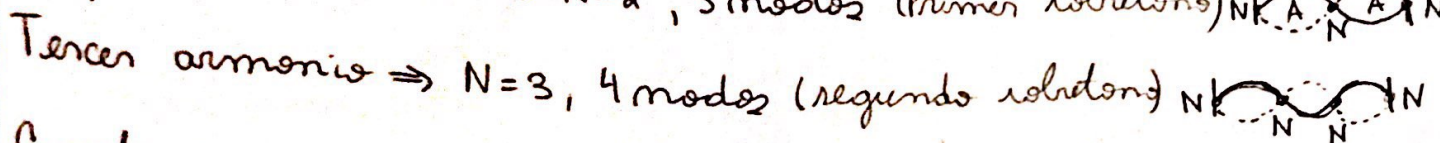 N=2, 3 nodos (Primer sobretono) N A N A N
Tercer armonico ⇒ N=3, 4 nodos (segundo sobretono) N N N N